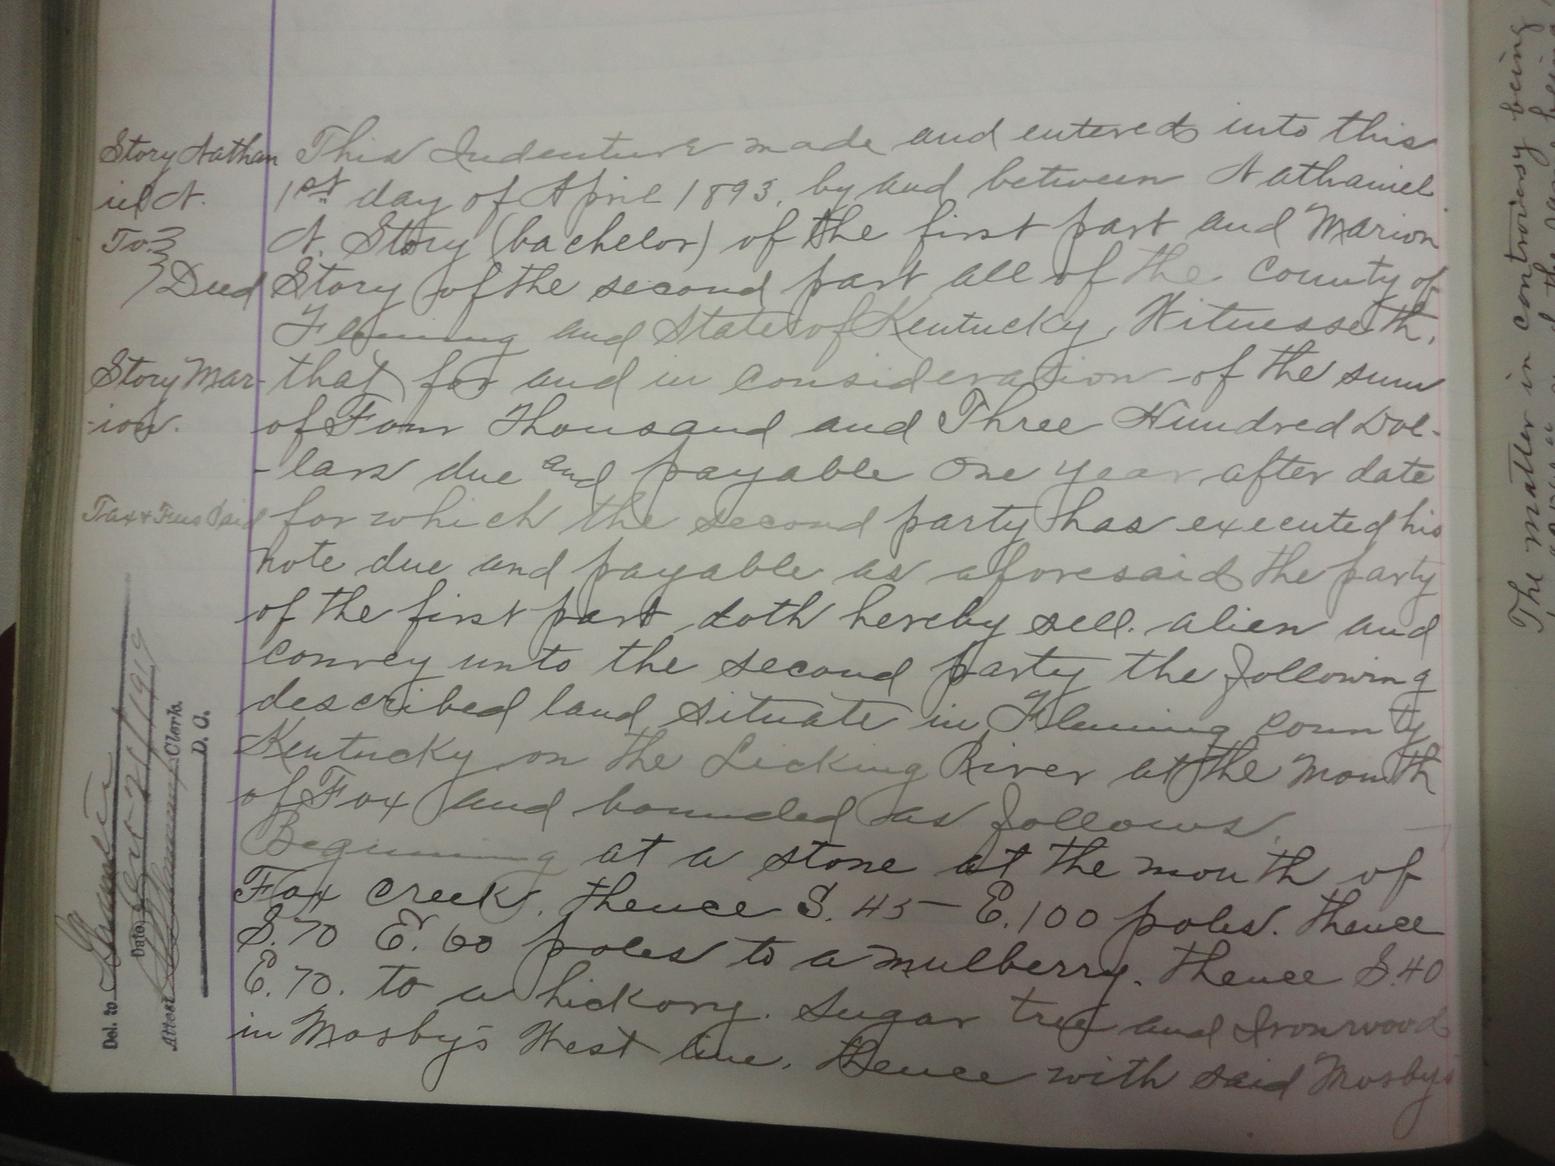 Story Nathan
iel N.
To
Deed
Story Mar-
-ion.
Tax & Fees Paid
This Indenture made and entered into this
1st day of April 1893, by and between Nathaniel
N. Story (bachelor) of the first part and Marion
Story of the second part all of the County of
Fleming and State of Kentucky, Witnesseth,
that for and in consideration of the sum
of Four Thousand and Three Hundred Dol-
-lars due and payable One year after date
for which the second party has executed his
note due and payable as aforesaid the party
of the first part doth hereby sell. alien and
convey unto the second party the following
described land situate in Fleming county
Kentucky on the Licking River at the Mouth
of Fox and bounded as follows.
Beginning at a stone at the mouth of
Fox creek. thence S. 45- E. 100 poles. thence
S. 70 E. 60 poles to a mulberry. thence S. 40
E. 70. to a hickory. Sugar tree and Ironwood
in Mosby's West line. thence with said Mosby's
Del. to Grantee
Date 1919
Attest Clerk.
D. C.
The matter in controversy being